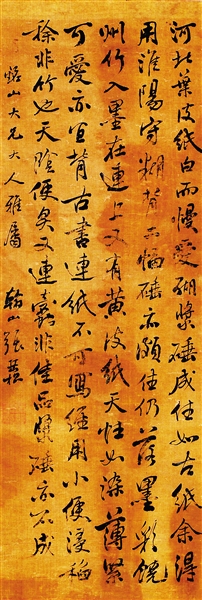 河北桑皮紙白而慢愛糊漿硾成佳如古紙余得
用淮陽守糊背不硾亦頗佳仍落墨彩饒
州竹入墨在連上又有黄皮紙天性如染薄緊
可愛亦宜背古書連紙不可寫經用小便浸稻
稈非竹也天陰便臭又連非佳品漿硾亦不成
山大兄大人雅屬 山張